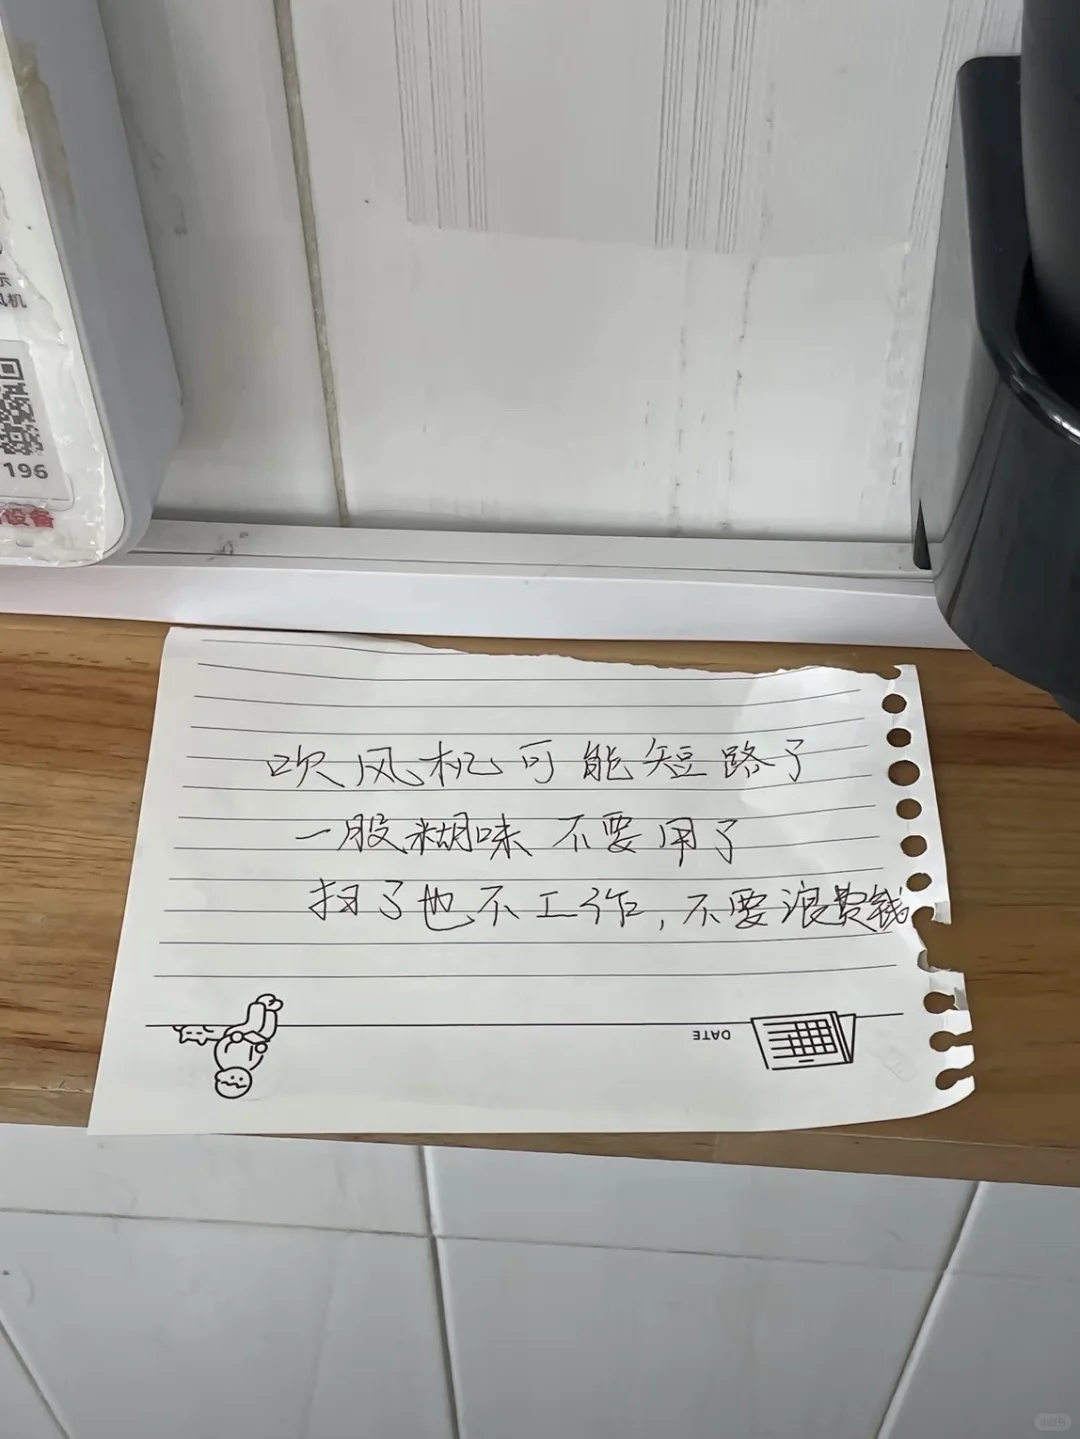 风机
196
设备
吹风机可能短路了
一股糊味 不要用了
扫了也不工作，不要浪费钱
DATE
小红书